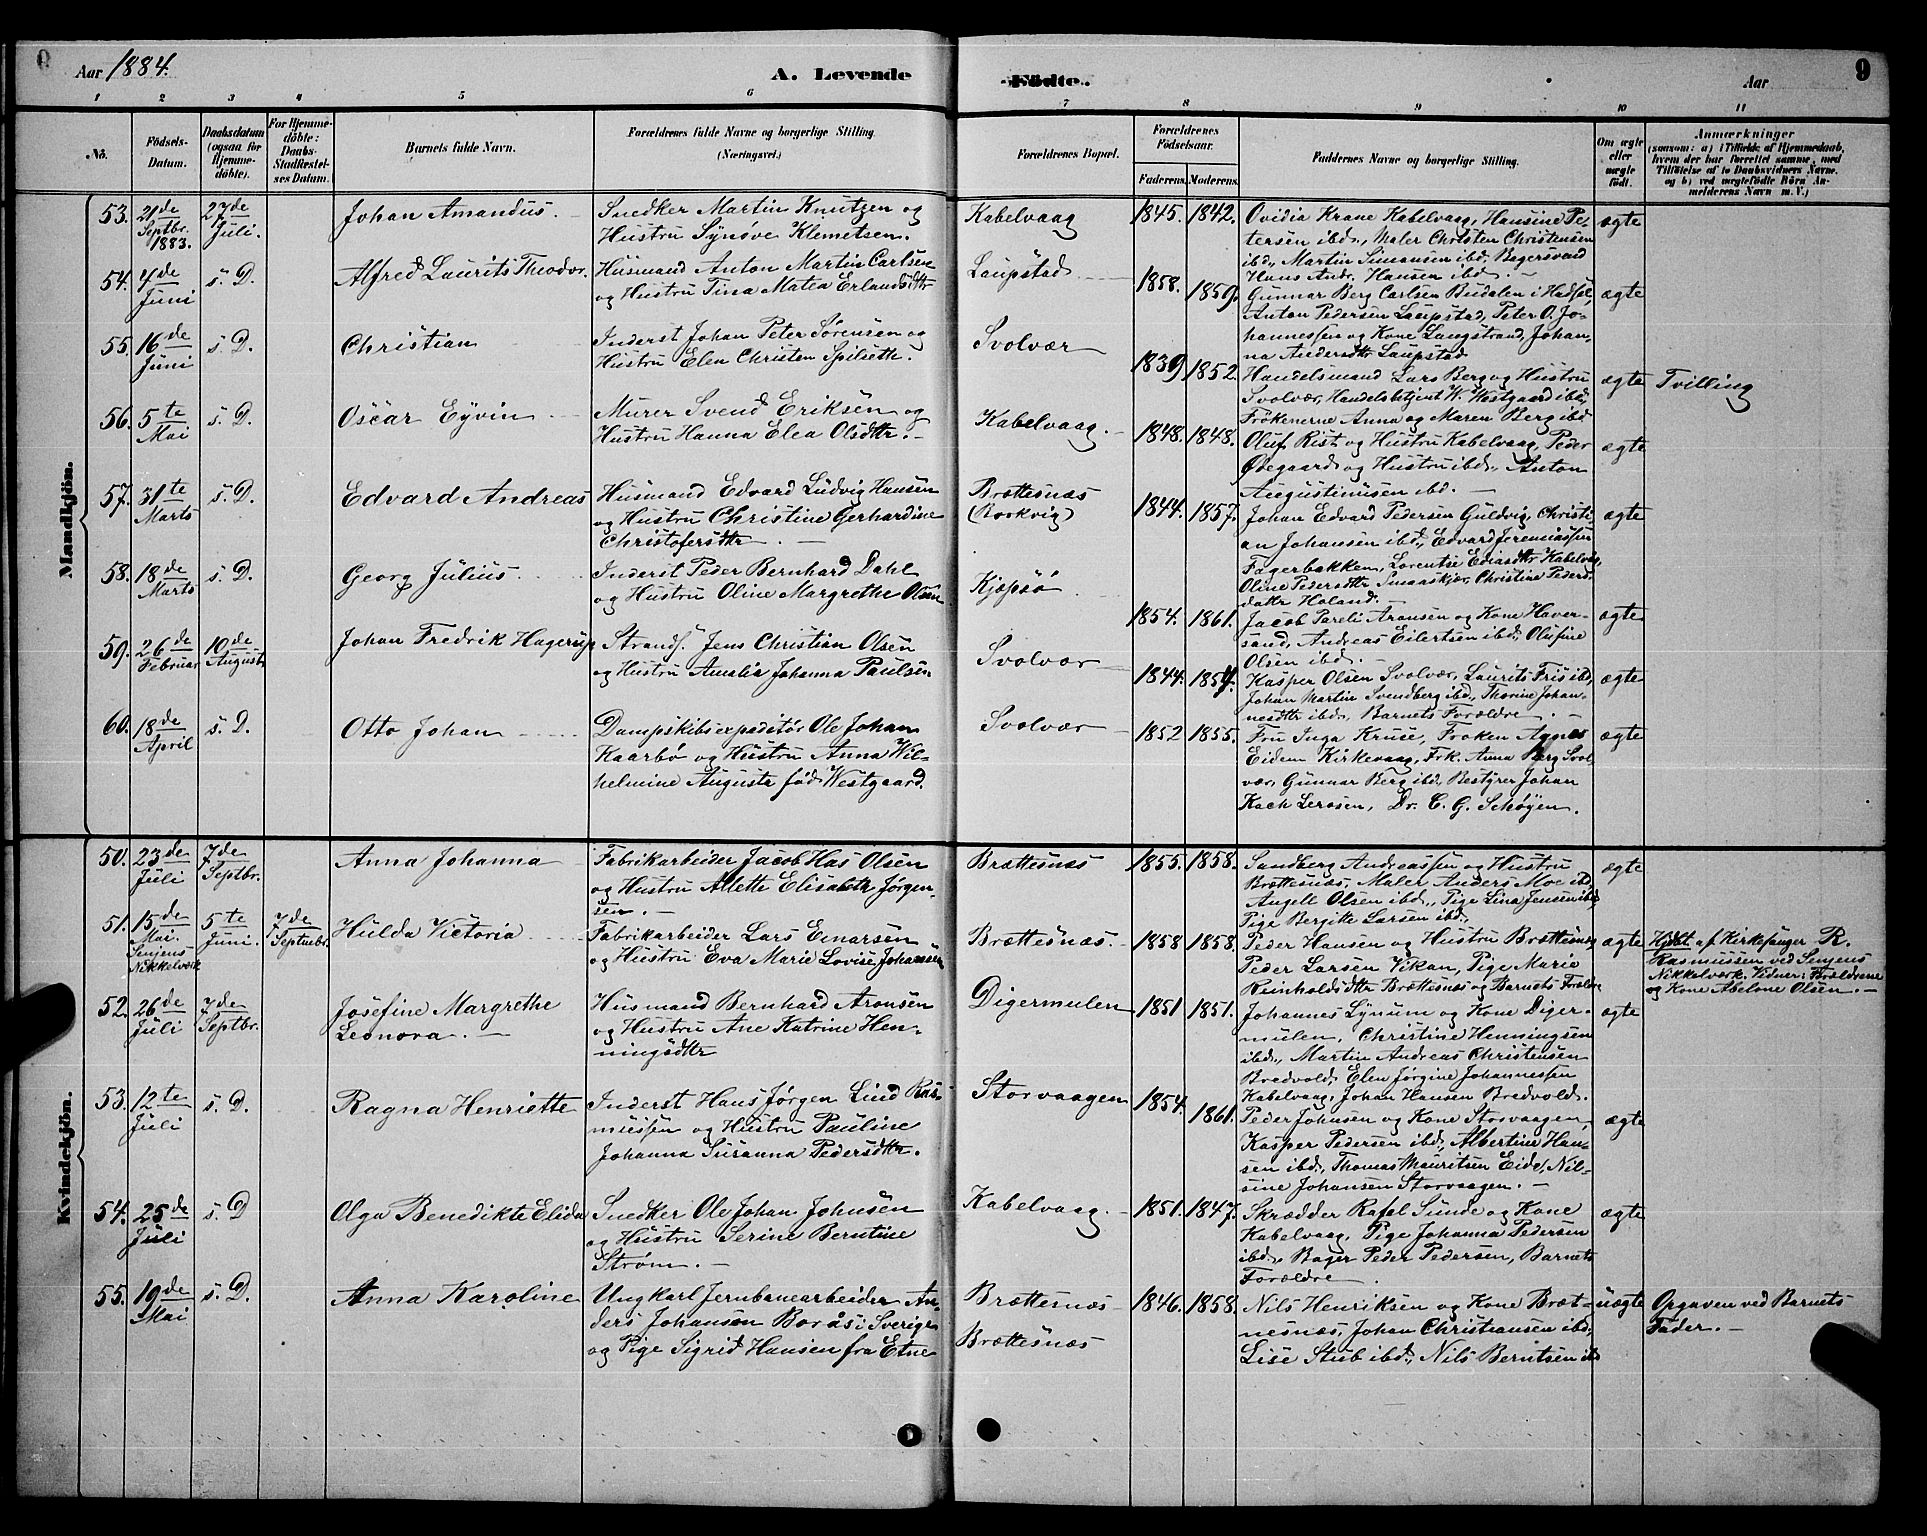 9
Aar 1884.
A. Levende
Födte.
Aar
9
1 2 3 4 5 6 7 8 9 10 11
No.
Födsels-
Datum.
Daabsdatum
(ogsaa for
Hjemme-
döbte).
For Hjemme-
döbte:
Daabs-
Stadfæstel-
ses Datum.
Barnets fulde Navn.
Forældrenes fulde Navne og borgerlige Stilling.
(Næringsvei.)
Forældrenes Bopæl.
Forældrenes
Födselsaar.
Faderens. Moderens.
Faddernes Navne og borgerlige Stilling.
Om ægte
eller
uægte
födt.
Anmærkninger
(saasom: a) i Tilfælde af Hjemmedaab,
hvem der har forrettet samme, med
Tilföielse af to Daabsvidners Navne,
og b) ved uægtefödte Börn An-
melderens Navn m. V.)
Mandkjön.
53. 21de
Septbr.
1883.
27de
Juli.
Johan Amandus.
Snedker Martin Knutzen og
Hustru Synøve Klemetsen.
Kabelvaag
1845. 1842.
Ovidia Krane Kabelvaag, Hansine Pe-
tersen ibd., Maler Christen Christensen
ibd., Martin Simonsen ibd., Bagersvend
Hans Andr. Hansen ibd.
ægte
54. 4de
Juni
s. D.
Alfred Laurits Theodor.
Husmand Anton Martin Carlsen
og Hustru Tina Matea Erlandsdtr
Laupstad
1858. 1859.
Gunnar Berg Carlsen Budalen i Hadsel,
Anton Pedersen Laupstad, Peter O. Jo-
hannessen og Kone Langstrand, Johan-
na Andersdtr Laupstad
ægte
55. 16de
Juni
s. D.
Christian
Inderst Johan Peter Sørensen og
Hustru Elen Christen Spilseth.
Svolvær
1839 1852.
Handelsmand Lars Berg og Hustru
Svolvær, Handelsbetjent W. Westgaard ibd.,
Frökenerne Anna og Maren Berg ibd
ægte
Tvilling
56. 5te
Mai
s. D.
Oscar Eyvin
Murer Svend Eriksen og
Hustru Hanna Elea Olsdtr.
Kabelvaag.
1848. 1848.
Oluf Rist og Hustru Kabelvaag, Peder
Ødegaard og Hustru ibd., Anton
Augustinusen ibd.
ægte
57. 31te
Marts
s. D.
Edvard Andreas
Husmand Edvard Ludvig Hansen
og Hustru Christine Gerhardine
Christofersdtr
Brættesnæs
(Rorkvig)
1844. 1857.
Johan Edvard Pedersen Guldvig, Christi-
an Johansen ibd., Edvard Jeremiassen
Fagerbakken, Lorentse Eliasdtr Kabelvaag,
Oline Pedersdtr Smaaskjær, Christine Peders-
datr Holand.
ægte
58. 18de
Marts
s. D.
Georg Julius.
Inderst Peder Bernhard Dahl
og Hustru Oline Margrethe Olsen
Kjeøsø
1854. 1861.
Jacob Pareli Aronsen og Kone Haver-
sand, Andreas Eilertsen ibd., Olufine
Olsen ibd.
ægte
59. 26de
Februar
10de
August
Johan Fredrik Hagerup
Strands. Jens Christian Olsen
og Hustru Amalia Johanna Paulsen
Svolvær
1844. 1854.
Kasper Olsen Svolvær, Laurits Friis ibd,
Johan Martin Svendberg ibd., Thorine Johan-
nesdtr ibd., Barnets Forældre.
ægte
60. 18de
April
s. D.
Otto Johan
Dampskibsexpeditør Ole Johan
Kaarbø og Hustru Anna Wil-
helmine Augusta född Westgaard.
Svolvær
1852 1855.
Fru Inga Kruse, Frøken Agnes
Eidem Kirkevaag, Frk. Anna Berg Svol-
vær, Gunnar Berg ibd., Bestyrer Johan
Koch Lerosen, Dr. C. G. Schøyen.
ægte
Kvindekjön.
50. 23de
Juli
7de
Septbr.
Anna Johanna
Fabrikarbeider Jacob Has Olsen
og Hustru Alette Elisabeth Jørgen-
sen.
Brættesnæs
1855. 1858.
Sandberg Andreassen og Hustru
Brættesnæs, Maler Anders Moe ibd,
Angell Olsen ibd., Pige Lina Jensen ibd,
Pige Bergitte Larsen ibd.,
ægte
51. 15de
Mai.
Senjens
Nikkelværk
5te
Juni.
7de
Septnbr.
Hulda Victoria
Fabrikarbeider Lars Enarsen
og Hustru Eva Marie Lovise Johansen
Brættesnæs.
1858 1858.
Peder Hansen og Hustru Brættesnæs
Peder Larsen Vikan, Pige Marie
Reinholdsdtr Brættesnæs og Barnets Forældre
ægte
Hjdöbt. af Kirkesanger R.
Rasmussen ved Senjens
Nikkelværk. Vidner: Forældrene
og Kone Abelone Olsen.
52. 26de
Juli
7de
Septbr.
Josefine Margrethe
Leonora.
Husmand Bernhard Aronsen
og Hustru Ane Katrine Hen-
ningsdtr
Digermulen
1851 1851.
Johannes Lynum og Kone Diger-
mulen, Christine Henningsen
ibd., Martin Andreas Christensen
Bredvold, Elen Jørgine Johannessen
Kabelvaag, Johan Hansen Bredvold.
ægte
53. 12te
Juli
s. D.
Ragna Henriette
Inderst Hans Jørgen Lind Ras-
mussen og Hustru Pauline
Johanna Susanna Pedersdtr.
Storvaagen
1854. 1861.
Peder Johnsen og Kone Storvaagen,
Kasper Pedersen ibd., Albertine Han-
sen ibd., Thomas Mauritsen Eide, Nil-
sine Johansen Storvaagen.
ægte
54. 25de
Juli
s. D
Olga Benedikte Elida
Snedker Ole Johan Johnsen
og Hustru Serine Berntine
Strøm.
Kabelvaag.
1851. 1847.
Skrædder Rafal Sunde og Kone
Kabelvaag, Pige Johanna Pedersen
ibd., Bager Peder Pedersen, Barnets
Forældre.
ægte
55. 19de
Mai
s. D.
Anna Karoline
Ungkarl Jernbanearbeider An-
ders Johansen Borås i Sverige
og Pige Sigrid Hansen fra Etne
Brættesnæs
Brættesnæs
1846. 1858.
Nils Henriksen og Kone Bræt-
nesnæs, Johan Christiansen ibd.,
Lise Stub ibd., Nils Berntsen ibd
uægte
Opgaven ved Barnets
Fader.